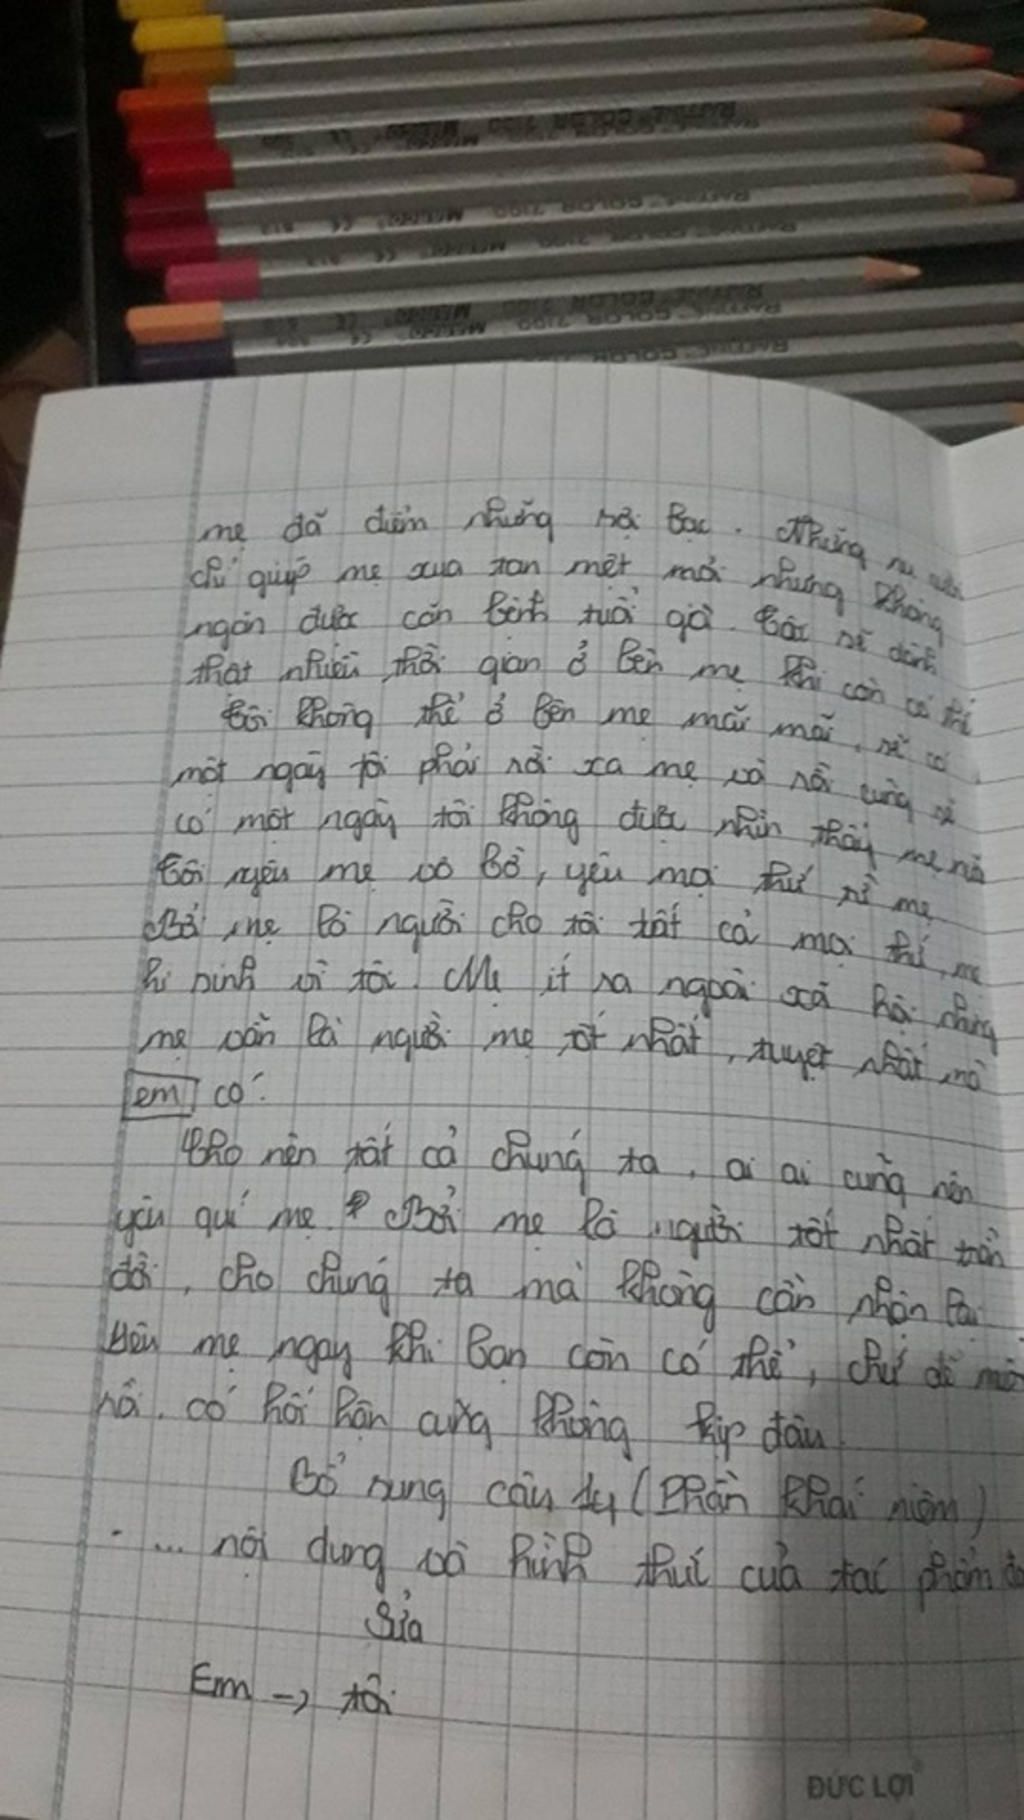 RAFFINÉ COLOR 7100 MARCO
mẹ đã điểm những sợi bạc. Những nụ
chỉ giúp mẹ xua tan mệt mỏi nhưng không
ngăn được căn bệnh tuổi già. Tôi sẽ dành
thật nhiều thời gian ở bên mẹ khi còn có thể
Tôi không thể ở bên mẹ mãi mãi, sẽ có
một ngày tôi phải rời xa mẹ và rồi cũng sẽ
có một ngày tôi không được nhìn thấy mẹ nữa
Tôi yêu mẹ vô bờ, yêu mọi thứ về mẹ
Bởi mẹ là người cho tôi tất cả mọi thứ, mẹ
hi sinh vì tôi. Mẹ ít ra ngoài xã hội nhưng
mẹ vẫn là người mẹ tốt nhất, tuyệt nhất mà
em có.
Cho nên tất cả chúng ta, ai ai cũng nên
yêu quí mẹ. Bởi mẹ là người tốt nhất trên
đời, cho chúng ta mà không cần nhận lại
Yêu mẹ ngay khi bạn còn có thể, chứ để
rồi, có hối hận cũng không kịp đâu
Bổ sung câu 4 (Phần khái niệm)
- ... nội dung và hình thức của tác phẩm đó
Sửa
Em -> tôi
ĐỨC LỢI